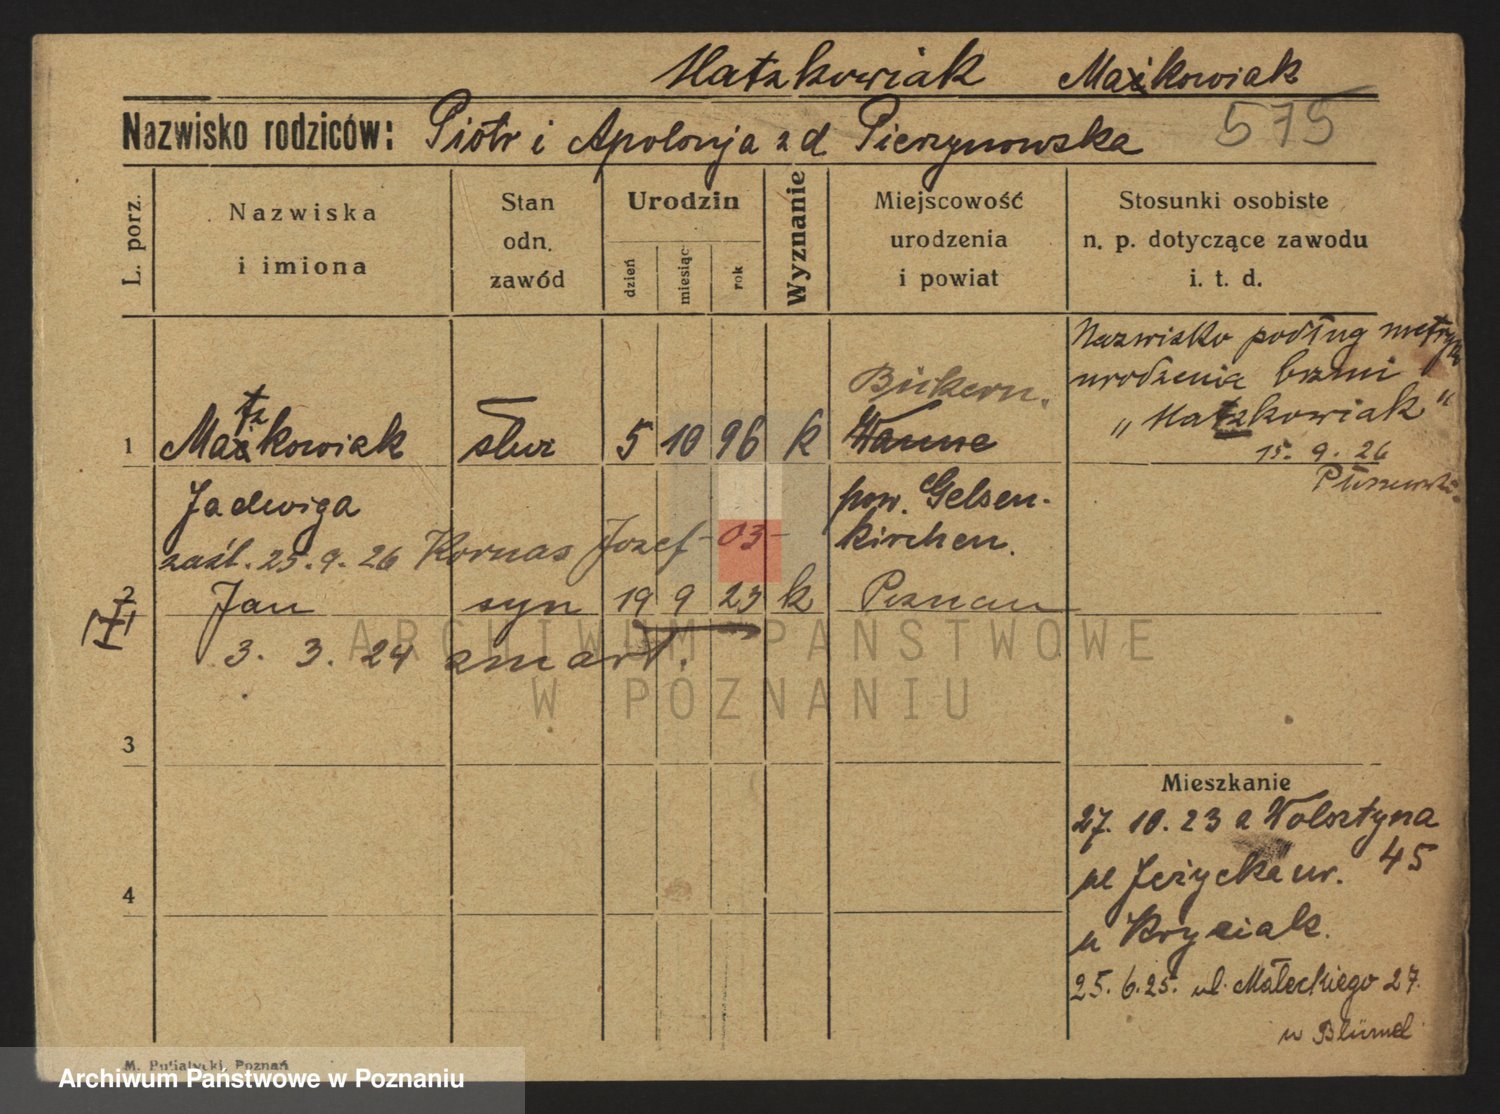 Matzkowiak Maćkowiak
Nazwisko rodziców: Piotr i Apolonja z d Pierzynowska 575
L. porz.
Nazwiska
i imiona
Stan
odn.
zawód
Urodzin
dzień
miesiąc
rok
Wyznanie
Miejscowość
urodzenia
i powiat
Stosunki osobiste
n. p. dotyczące zawodu
i. t. d.
Nazwisko podług metryki
urodzenia brzmi
„Matzkowiak"
15. 9. 26
Bickern.
1 Matzkowiak służ 5 10 96 k Wanne
Jadwiga pow. Gelsen-
kirchen.
zaśl. 25. 9. 26 Kornas Józef - 03 -
2 Jan syn 19 9 23 k Poznań
3. 3. 24 zmarł.
3
4
Mieszkanie
27. 10. 23 z Wolsztyna
ul Jeżycka nr. 45
u Krysiak.
25. 6. 25. ul. Małeckiego 27.
u Blümel
M. Putiatycki, Poznań
ARCHIWUM PAŃSTWOWE
W POZNANIU
Archiwum Państwowe w Poznaniu